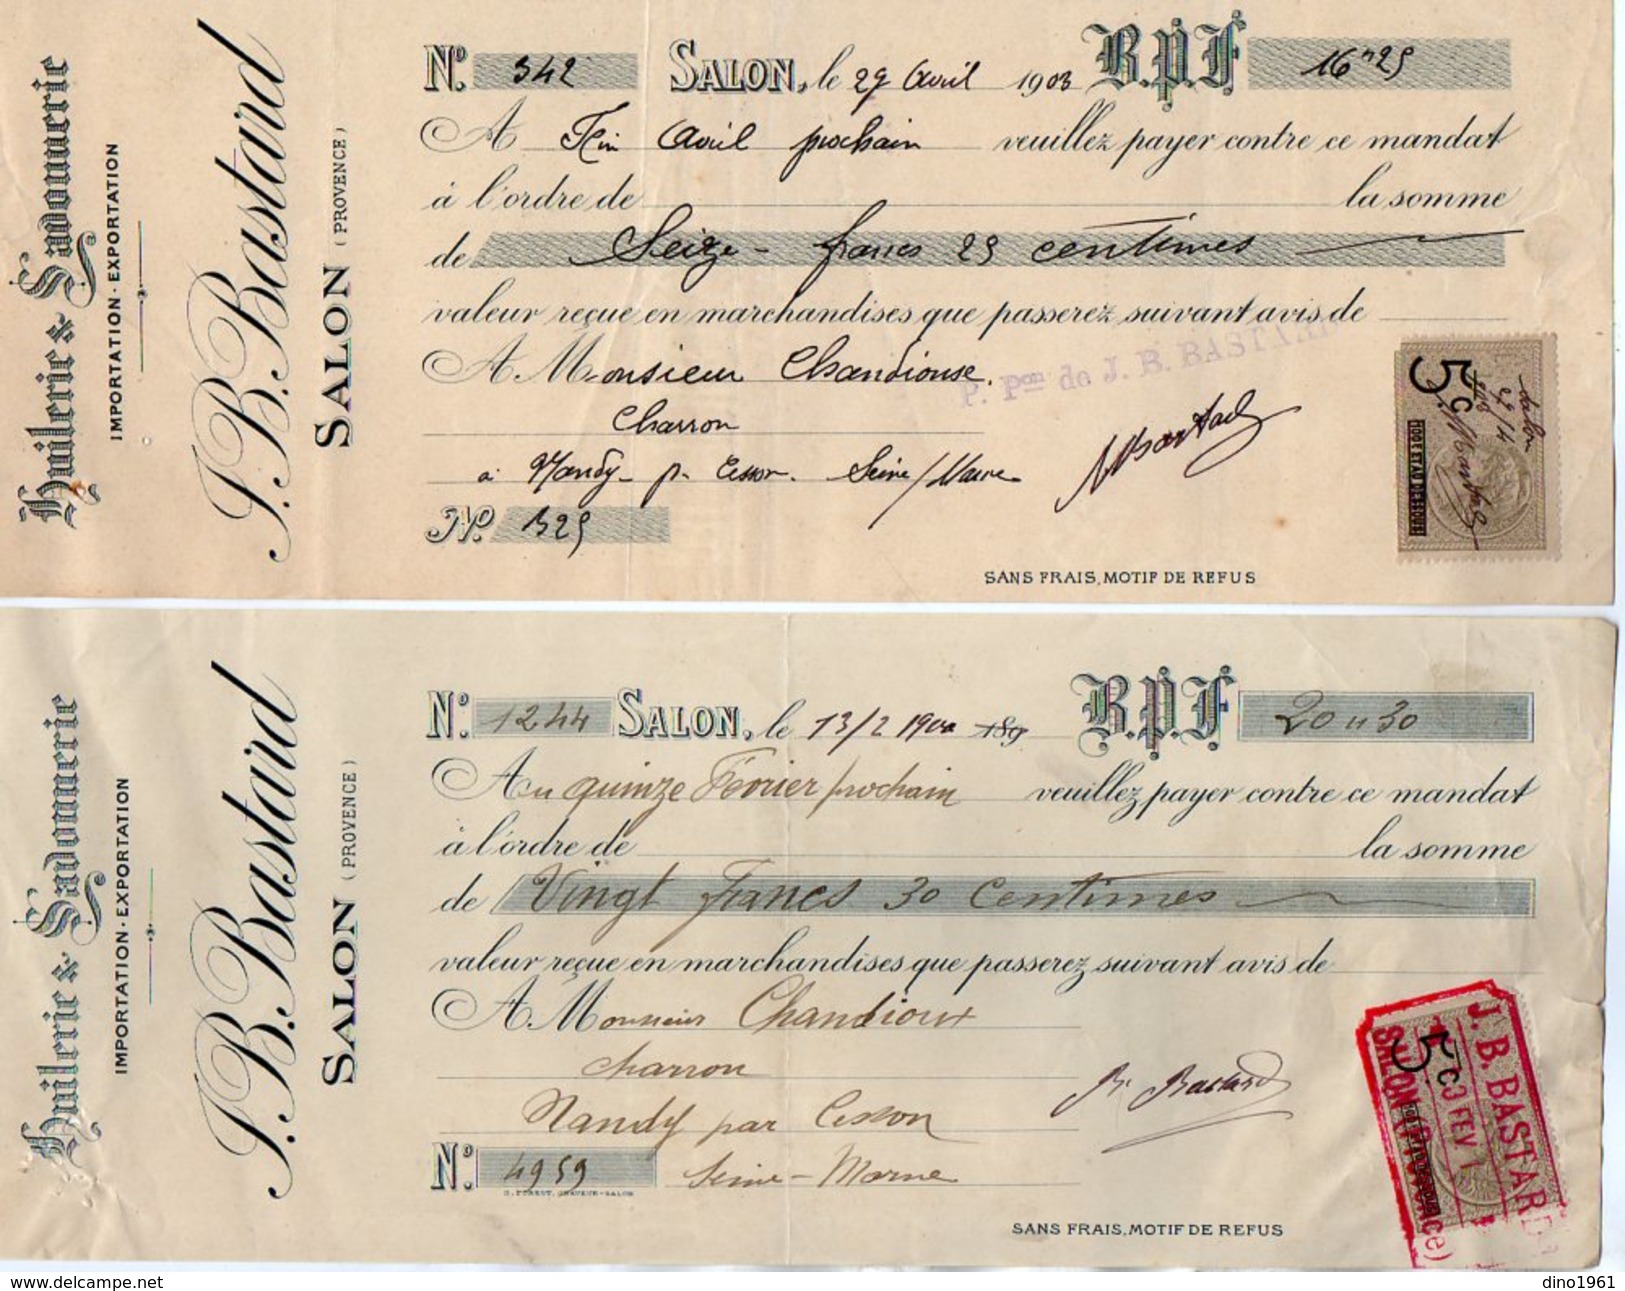 Huilerie & Savonnerie
IMPORTATION - EXPORTATION
J. B. Bastard
SALON (PROVENCE)
No. 342 SALON, le 29 Avril 1903 B.P.F 16"25
A Fin Avril prochain veuillez payer contre ce mandat
à l'ordre de la somme
de Seize francs 25 centimes
valeur reçue en marchandises que passerez suivant avis de
P. Pon de J. B. BASTARD
A Monsieur Chandiouse.
Charron
à Nandy p. Cesson. Seine/Marne
No. 325
5c
SANS FRAIS, MOTIF DE REFUS
Huilerie & Savonnerie
IMPORTATION - EXPORTATION
J. B. Bastard
SALON (PROVENCE)
No. 1244 SALON, le 13/2 1900 189 B.P.F 20 " 30
Au quinze Février prochain veuillez payer contre ce mandat
à l'ordre de la somme
de Vingt francs 30 Centimes
valeur reçue en marchandises que passerez suivant avis de
A Monsieur Chandioux
Charron
Nandy par Cesson
No. 4959 Seine-Marne
J. B. BASTARD
5c
SANS FRAIS, MOTIF DE REFUS
dino1961